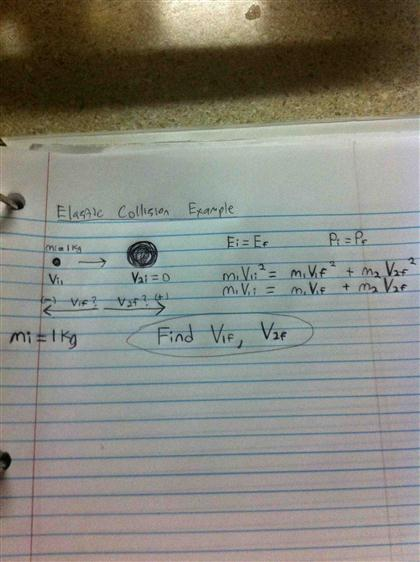 Elastic Collision Example
Ei = Ef Pi = Pf
mi = 1 Kg
V1i V2i = 0
m1V1i² = m1V1f² + m2V2f²
m1V1i = m1V1f + m2V2f
(-) V1f? V2f? (+)
mi = 1 Kg
Find V1f, V2f